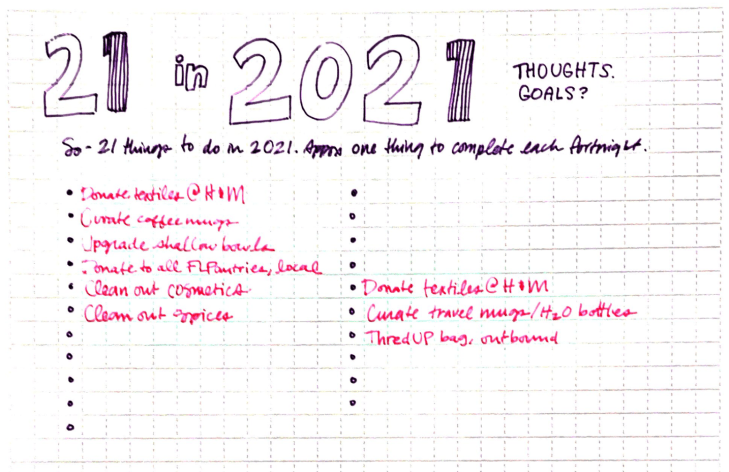 21 in 2021
THOUGHTS.
GOALS?
So - 21 things to do in 2021. Approx one thing to complete each fortnight.
• Donate textiles @ H&M
• Curate coffee mugs
• Upgrade shallow bowls
• Donate to all FL Pantries, local
• Clean out cosmetics
• Clean out spices
• Donate textiles @ H&M
• Curate travel mugs/H₂O bottles
• ThredUP bag, outbound